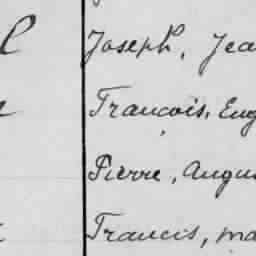 Joseph, Jea
François, Eug
Pierre, Augus
Francis, ma